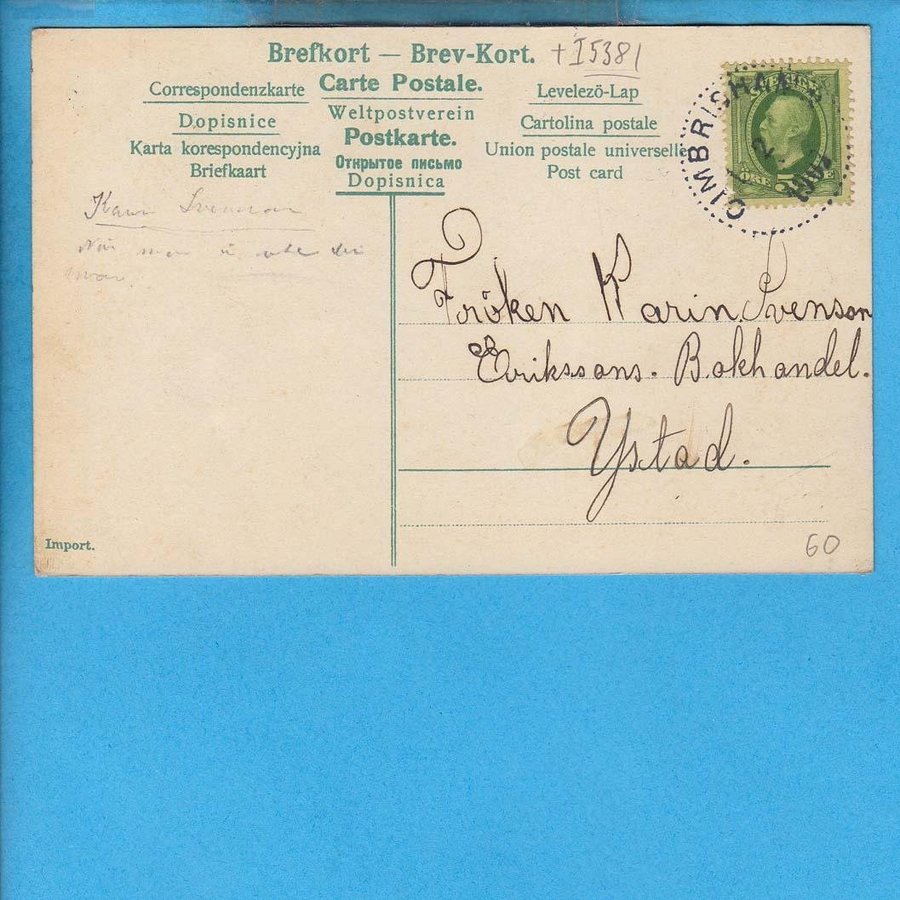 Brefkort — Brev-Kort. + I5381
Correspondenzkarte
Carte Postale.
Levelezö-Lap
Dopisnice
Weltpostverein
Cartolina postale
Karta korespondencyjna
Postkarte.
Union postale universelle
Briefkaart
Открытое письмо
Post card
Dopisnica
CIMBRISHAMN
2
Karin Svenson
Fröken Karin Svenson
Erikssons. Bokhandel.
Ystad.
Import.
60